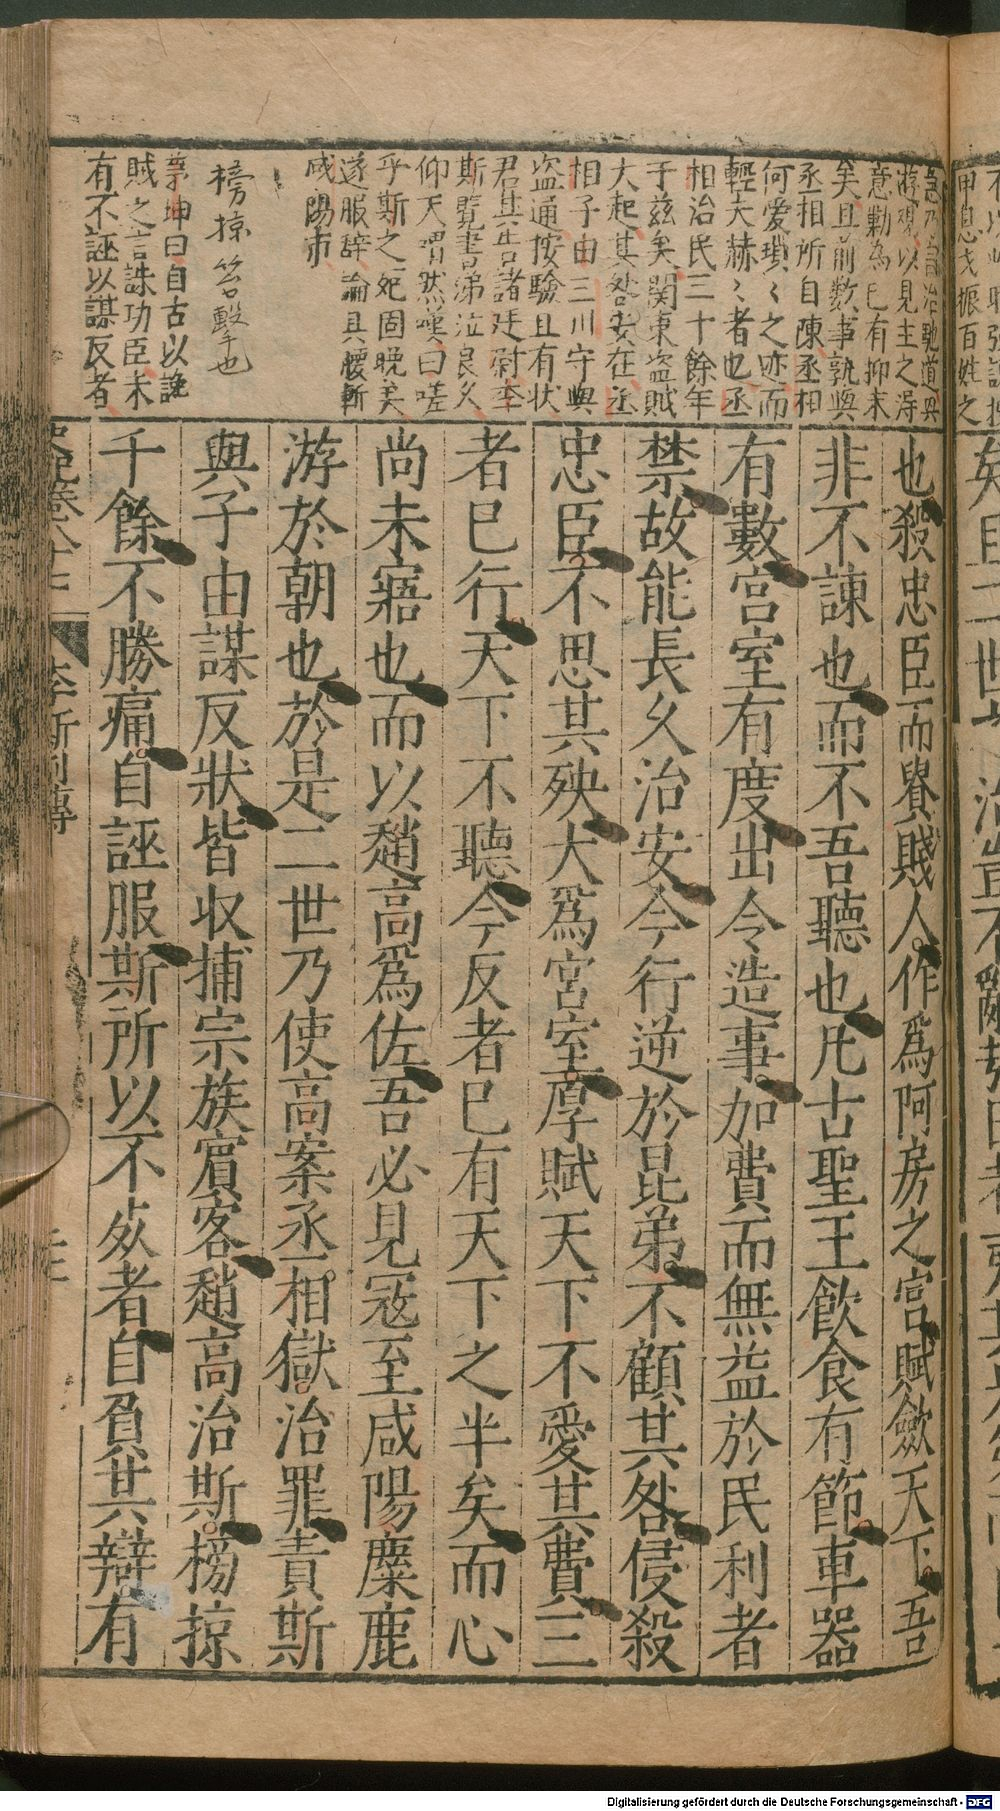 急乃言治馳道興
游觀以見主之得
意勤為已有抑末
矣且前數事孰與
丞相所自陳丞相
何愛瑣〻之迹而
輕大赫〻者也丞
相治民三十餘年
于兹矣関東盗賊
大起其咎安在丞
相子由三川守與
盗通按驗且有状
君其告諸廷尉李
斯覧書涕泣良久
仰天喟然嘆曰嗟
乎斯之死固晚矣
遂服辞論具腰斬
咸陽市
榜掠笞擊也
茅坤曰自古以讒
賊之言誅功臣未
有不誣以謀反者
也殺忠臣而貴賤人作爲阿房之宫賦斂天下吾
非不諫也而不吾聽也凡古聖王飲食有節車器
有數宮室有度出令造事加費而無益於民利者
禁故能長久治安今行逆於昆弟不顧其咎侵殺
忠臣不思其殃大爲宮室厚賦天下不愛其費三
者已行天下不聽今反者已有天下之半矣而心
尚未寤也而以趙高爲佐吾必見冦至咸陽麋鹿
游於朝也於是二世乃使高案丞相獄治罪責斯
與子由謀反狀皆收捕宗族賓客趙高治斯榜掠
千餘不勝痛自誣服斯所以不死者自負其辯有
李斯列傳
Digitalisierung gefördert durch die Deutsche Forschungsgemeinschaft - DFG